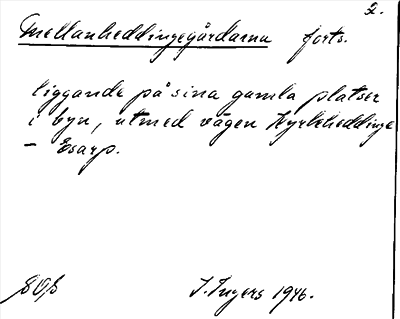 2.
Mellanheddingegårdarna forts.
liggande på sina gamla platser
i byn, utmed vägen Kyrkheddinge
- Esarp.
I. Ingers 1946.